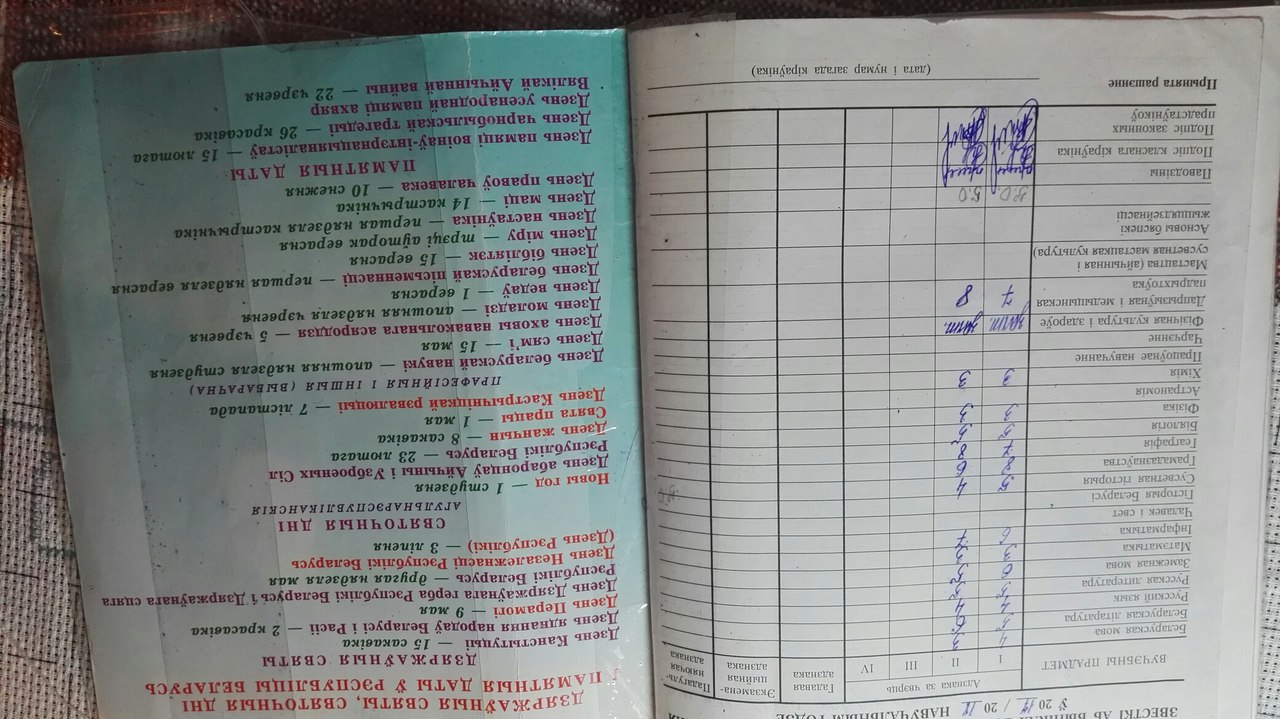 ЗВЕСТКІ АБ
Ў 2017 / 2018 НАВУЧАЛЬНЫМ ГОДЗЕ
ВУЧЭБНЫ ПРАДМЕТ
Адзнака за чвэрць
I II III IV
Гадавая адзнака
Экзамена-
цыйная
адзнака
Падагуль-
няючая
адзнака
Беларуская мова 4 3
Беларуская літаратура 5 6
Русский язык 4 4
Русская литература 5 5
Замежная мова 6 5
Матэматыка 3 3
Інфарматыка 6 7
Чалавек і свет
Гісторыя Беларусі
Сусветная гісторыя 5 4
Грамадазнаўства 8 6
Геаграфія 7 8
Біялогія 5 5
Фізіка 3 3
Астраномія
Хімія 3 3
Працоўнае навучанне
Чарчэнне
Фізічная культура і здароўе зачт. зачт.
Дапрызыўная і медыцынская
падрыхтоўка 7 8
Мастацтва (айчынная і
сусветная мастацкая культура)
Асновы бяспекі
жыццядзейнасці
5.0 5.0
5.0
Паводзіны
Подпіс класнага кіраўніка
Подпіс законных
прадстаўнікоў
Прынята рашэнне
(дата і нумар загада кіраўніка)
ДЗЯРЖАЎНЫЯ СВЯТЫ, СВЯТОЧНЫЯ ДНІ
І ПАМЯТНЫЯ ДАТЫ Ў РЭСПУБЛІЦЫ БЕЛАРУСЬ
ДЗЯРЖАЎНЫЯ СВЯТЫ
Дзень Канстытуцыі — 15 сакавіка
Дзень яднання народаў Беларусі і Расіі — 2 красавіка
Дзень Перамогі — 9 мая
Дзень Дзяржаўнага герба Рэспублікі Беларусь і Дзяржаўнага сцяга
Рэспублікі Беларусь — другая нядзеля мая
Дзень Незалежнасці Рэспублікі Беларусь
(Дзень Рэспублікі) — 3 ліпеня
СВЯТОЧНЫЯ ДНІ
АГУЛЬНАРЭСПУБЛІКАНСКІЯ
Новы год — 1 студзеня
Дзень абаронцаў Айчыны і Узброеных Сіл
Рэспублікі Беларусь — 23 лютага
Дзень жанчын — 8 сакавіка
Свята працы — 1 мая
Дзень Кастрычніцкай рэвалюцыі — 7 лістапада
ПРАФЕСІЙНЫЯ І ІНШЫЯ (ВЫБАРАЧНА)
Дзень беларускай навукі — апошняя нядзеля студзеня
Дзень сям'і — 15 мая
Дзень аховы навакольнага асяроддзя — 5 чэрвеня
Дзень моладзі — апошняя нядзеля чэрвеня
Дзень ведаў — 1 верасня
Дзень беларускай пісьменнасці — першая нядзеля верасня
Дзень бібліятэк — 15 верасня
Дзень міру — трэці аўторак верасня
Дзень настаўніка — першая нядзеля кастрычніка
Дзень маці — 14 кастрычніка
Дзень правоў чалавека — 10 снежня
ПАМЯТНЫЯ ДАТЫ
Дзень памяці воінаў-інтэрнацыяналістаў — 15 лютага
Дзень чарнобыльскай трагедыі — 26 красавіка
Дзень усенароднай памяці ахвяр
Вялікай Айчыннай вайны — 22 чэрвеня